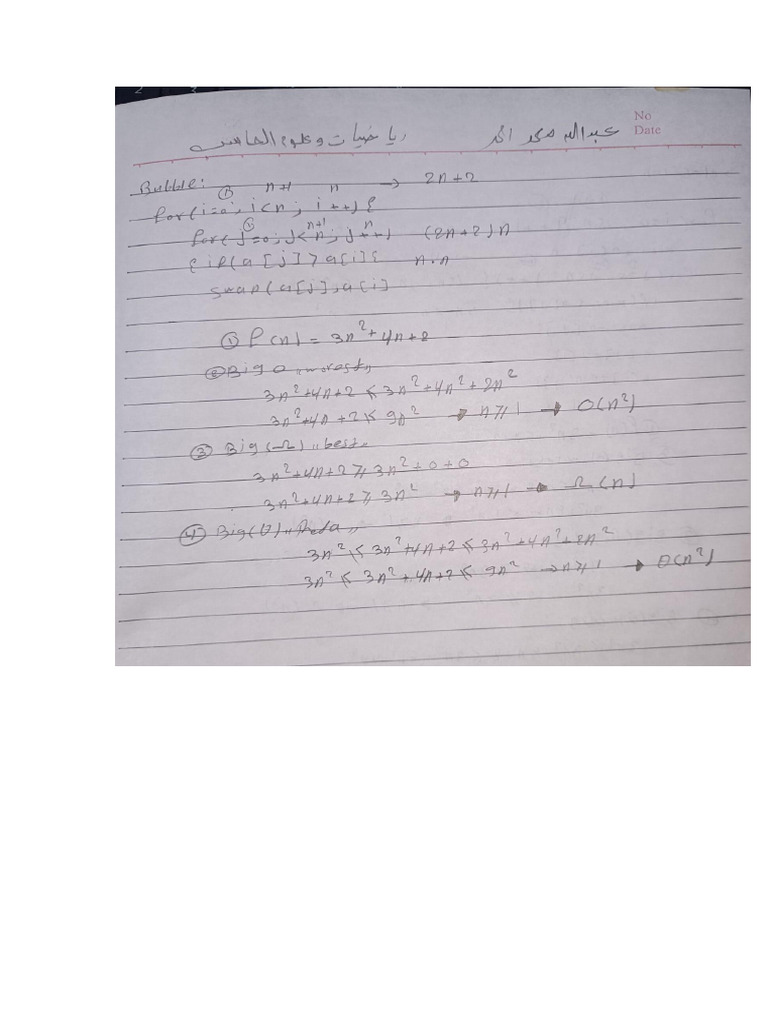 No
Date
عبدالله محمد احمد رياضيات وعلوم الحاسب
Bubble:
① n+1 n → 2n+2
for(i=0; i<n; i++) {
① n+1 n
for( j=0; j<n; j++) (2n+2)n
{ if(a[j]>a[i]{ n.n
swap(a[j],a[i]
① f(n) = 3n²+4n+2
② Big O
3n²+4n+2 ⩽ 3n²+4n²+2n²
3n²+4n+2 ⩽ 9n² → n⩾1 → O(n²)
③ Big(Ω) „best„
3n²+4n+2 ⩾ 3n²+0+0
3n²+4n+2 ⩾ 3n² → n⩾1 → Ω(n)
④ Big(θ) „theda„
3n² ⩽ 3n²+4n+2 ⩽ 3n²+4n²+2n²
3n² ⩽ 3n²+4n+2 ⩽ 9n² → n⩾1 → θ(n²)